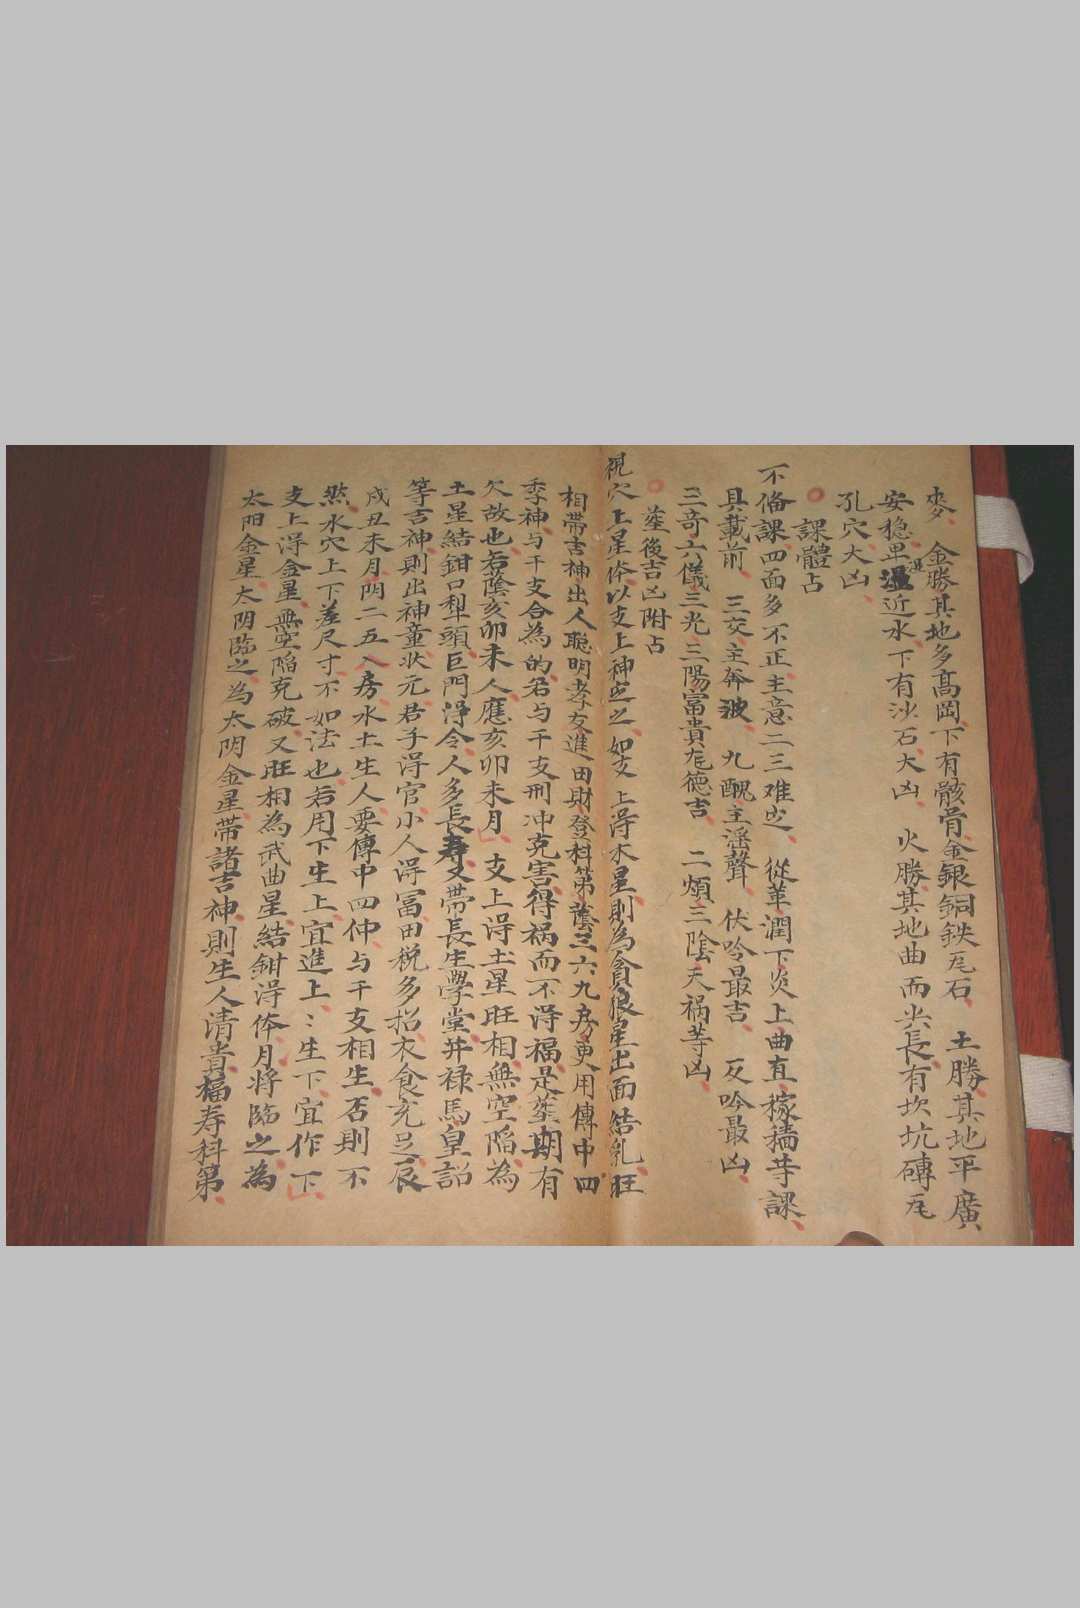 麥、金勝其地多髙岡、下有骸骨、金銀銅鉄瓦石、土勝、其地平廣
安穏、畢濕近水、下有沙石大凶、火勝、其地曲而尖長、有坎坑磚瓦
孔穴大凶、
課體占
不俻課、四面多不正、主意二三难㞢、從革潤下炎上曲直稼穡等課、
具載前、三交主奔波、九醜主滛聲、伏吟最吉、反吟最凶、
三竒六儀三光三陽富貴、厖德吉、二煩三隂天禍等凶、
塟後吉凶附占
視穴上星体、以支上神㞢之、如支上淂木星、則為貪狼星出面結乳、旺
相帶吉神出人聡明孝友、進田財登科第、蔭三六九房、更用傳中四
季神、与干支合為的、若与干支刑冲克害、得禍而不淂福、是塟期有
欠故也、若蔭亥卯未人、應亥卯未月、支上淂土星旺相無空陷、為
土星結鉗口犁頭巨門、淂令人多長寿、又帶長生學堂并禄馬皇詔
等吉神、則出神童状元、君子淂官、小人淂冨、田税多招、衣食充足、辰
戌丑未月阴二五八房、水土生人、要傳中四仲与干支相生、否則不
然、水穴上下差尺寸不如法也、若用下生上宜進上、上生下宜作下、
支上淂金星、無空陷克破、又旺相為武曲星、結鉗淂体、月將臨之為
太阳金星、太阴臨之、為太阴金星、帶諸吉神、則生人清貴、福寿科第、